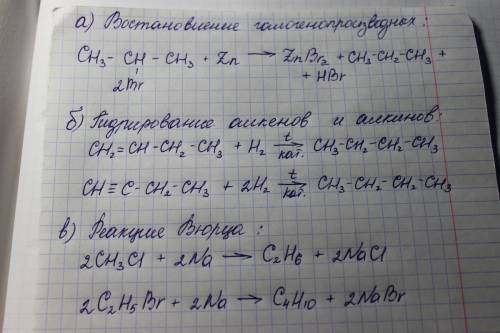 а) Востановление галогенопроизводных:
CH₃ - CH - CH₃ + Zn → ZnBr₂ + CH₃-CH₂-CH₃ +
2Br
+ HBr
б) Гидрирование алкенов и алкинов:
CH₂=CH-CH₂-CH₃ + H₂ t кат. → CH₃-CH₂-CH₂-CH₃
CH≡C-CH₂-CH₃ + 2H₂ t кат. → CH₃-CH₂-CH₂-CH₃
в) Реакция Вюрца:
2CH₃Cl + 2Na → C₂H₆ + 2NaCl
2C₂H₅Br + 2Na → C₄H₁₀ + 2NaBr